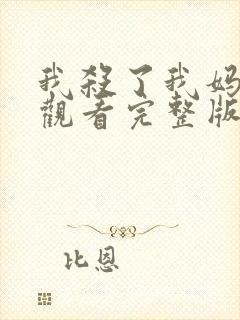 我殺了我妈
觀看完整版
比恩